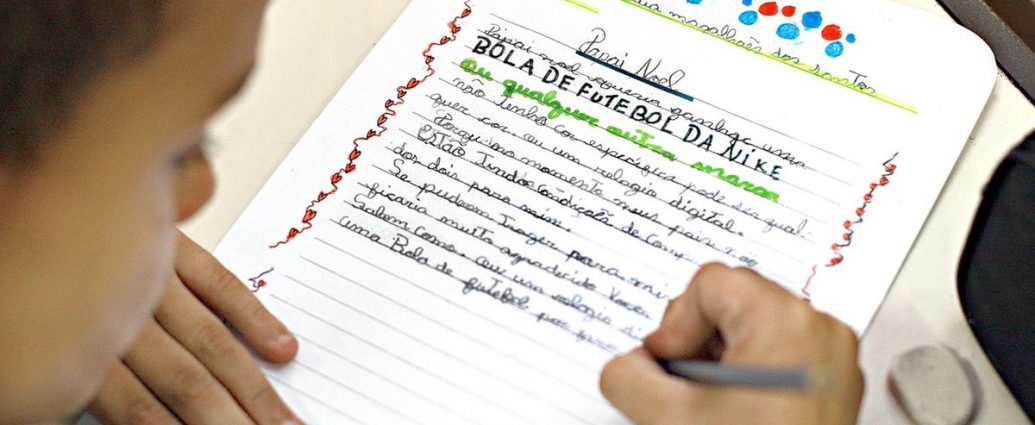 magalhães dos santos
Papai Noel
Papai noel queria ganhar uma
BOLA DE FUTEBOL DA NiKE
ou qualquer outra marca
não tenho cor específica pode ser qual-
quer cor ou um relogio digital.
Porque no momento meus pais não
estão tendo condição de comp
dos dois para mim.
Se puderem trazer para mim
ficaria muito agradecido
ou um relogio di
uma Bola de
futebol por